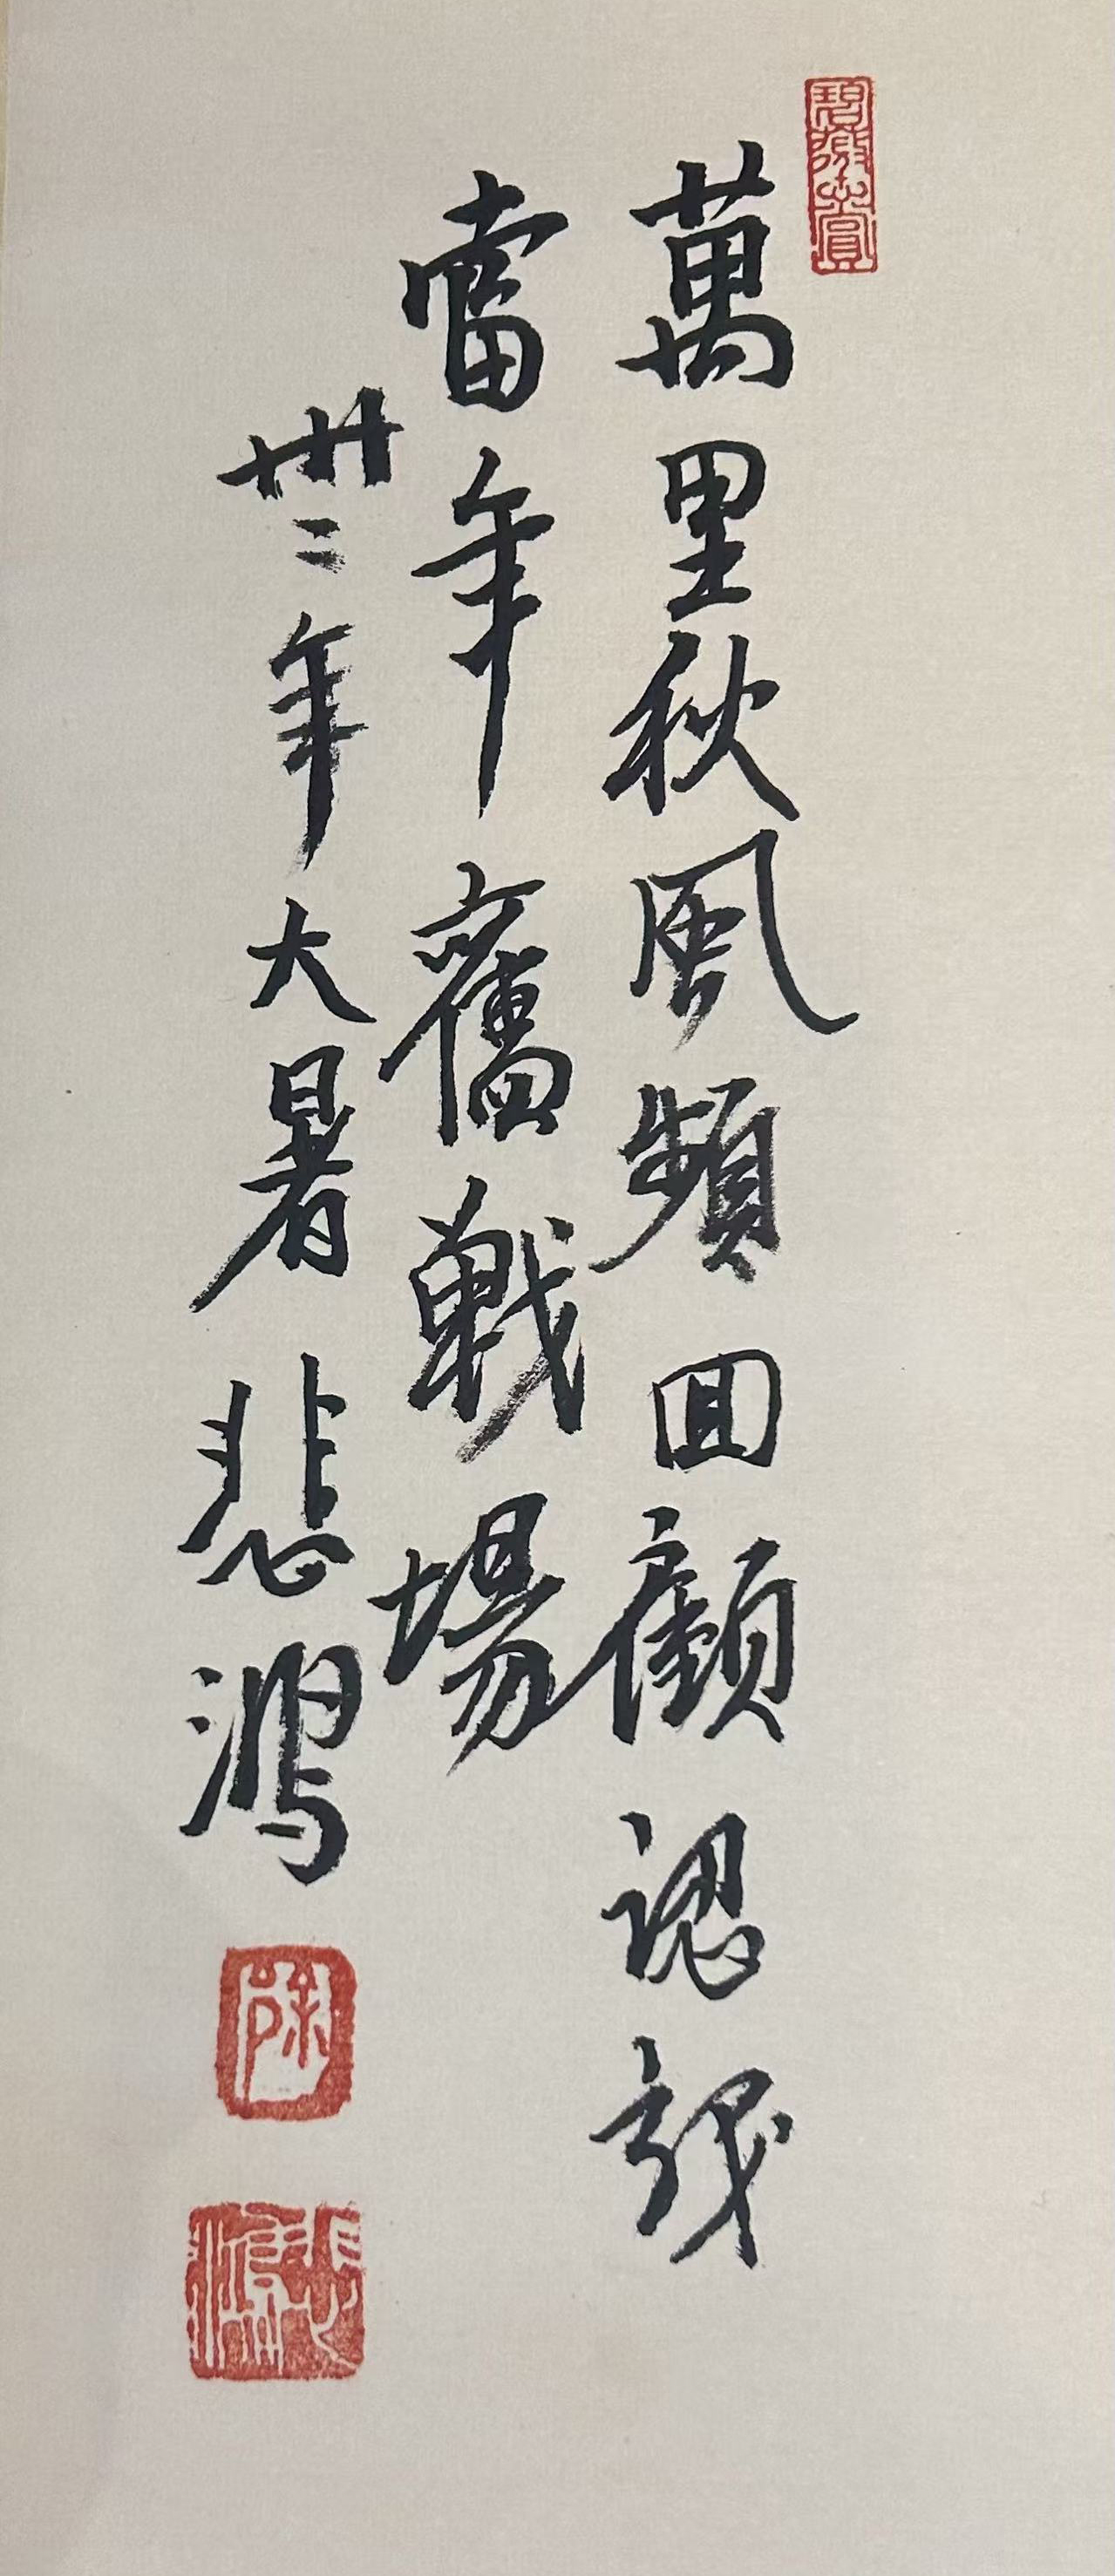 萬里秋風頻回顧認識
當年舊戰場
卅二年大暑悲鴻
徐
悲鴻